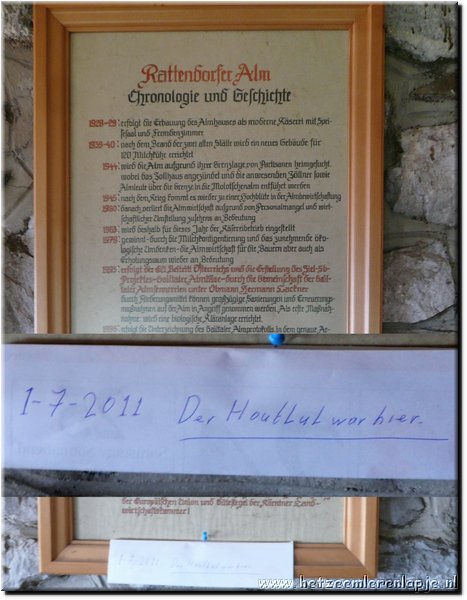 Rattendorfer Alm
Chronologie und Geschichte
1928-29: erfolgt die Erbauung des Almhauses als moderne Käserei mit Spei-
sesaal und Fremdenzimmer
1939-40: nach dem Brand der zwei alten Ställe wird ein neues Gebäude für
120 Milchkühe errichtet
1944: wird die Alm aufgrund ihrer Grenzlage von Partisanen heimgesucht,
wobei das Zollhaus angezündet und die anwesenden Zöllner sowie
Almleute über die Grenze in die
entführt werden
1945: nach dem Krieg kommt es wieder zu einer Hochblüte in der Almbewirtschaftung
1960: danach verliert die Almwirtschaft aufgrund von Personalmangel und wirt-
schaftlicher Umstellung zusehens an Bedeutung
1983: wird deshalb für dieses Jahr der Käsereibetrieb eingestellt
1979: gewinnt durch die Milchkontigentierung und das zunehmende öko-
logische Umdenken die Almwirtschaft für die Bauern aber auch als
Erholungsraum wieder an Bedeutung
1995: erfolgt der EU Beitritt Österreichs und die Erstellung des Ziel-5b-
Projektes Gailtaler Almkäse durch die Gemeinschaft der Gail-
taler Almsennereien unter Obmann Hermann Lackner
durch Fördermittel können großzügige Sanierungen und Erneuerungs-
maßnahmen auf der Alm in Angriff genommen werden. Als erste Maßnah-
nahme wird eine biologische Kläranlage errichtet.
1996: erfolgt die Unterzeichnung des Gailtaler Almprotokolls, in dem genaue Ar-
1-7-2011 Der Houtlul war hier.
der Europäischen Union und Gütesiegel der Kärntner Land-
wirtschaftskammer!
1-7-2011 Der Houtlul war hier.
www.hetzeemlerenlapje.nl